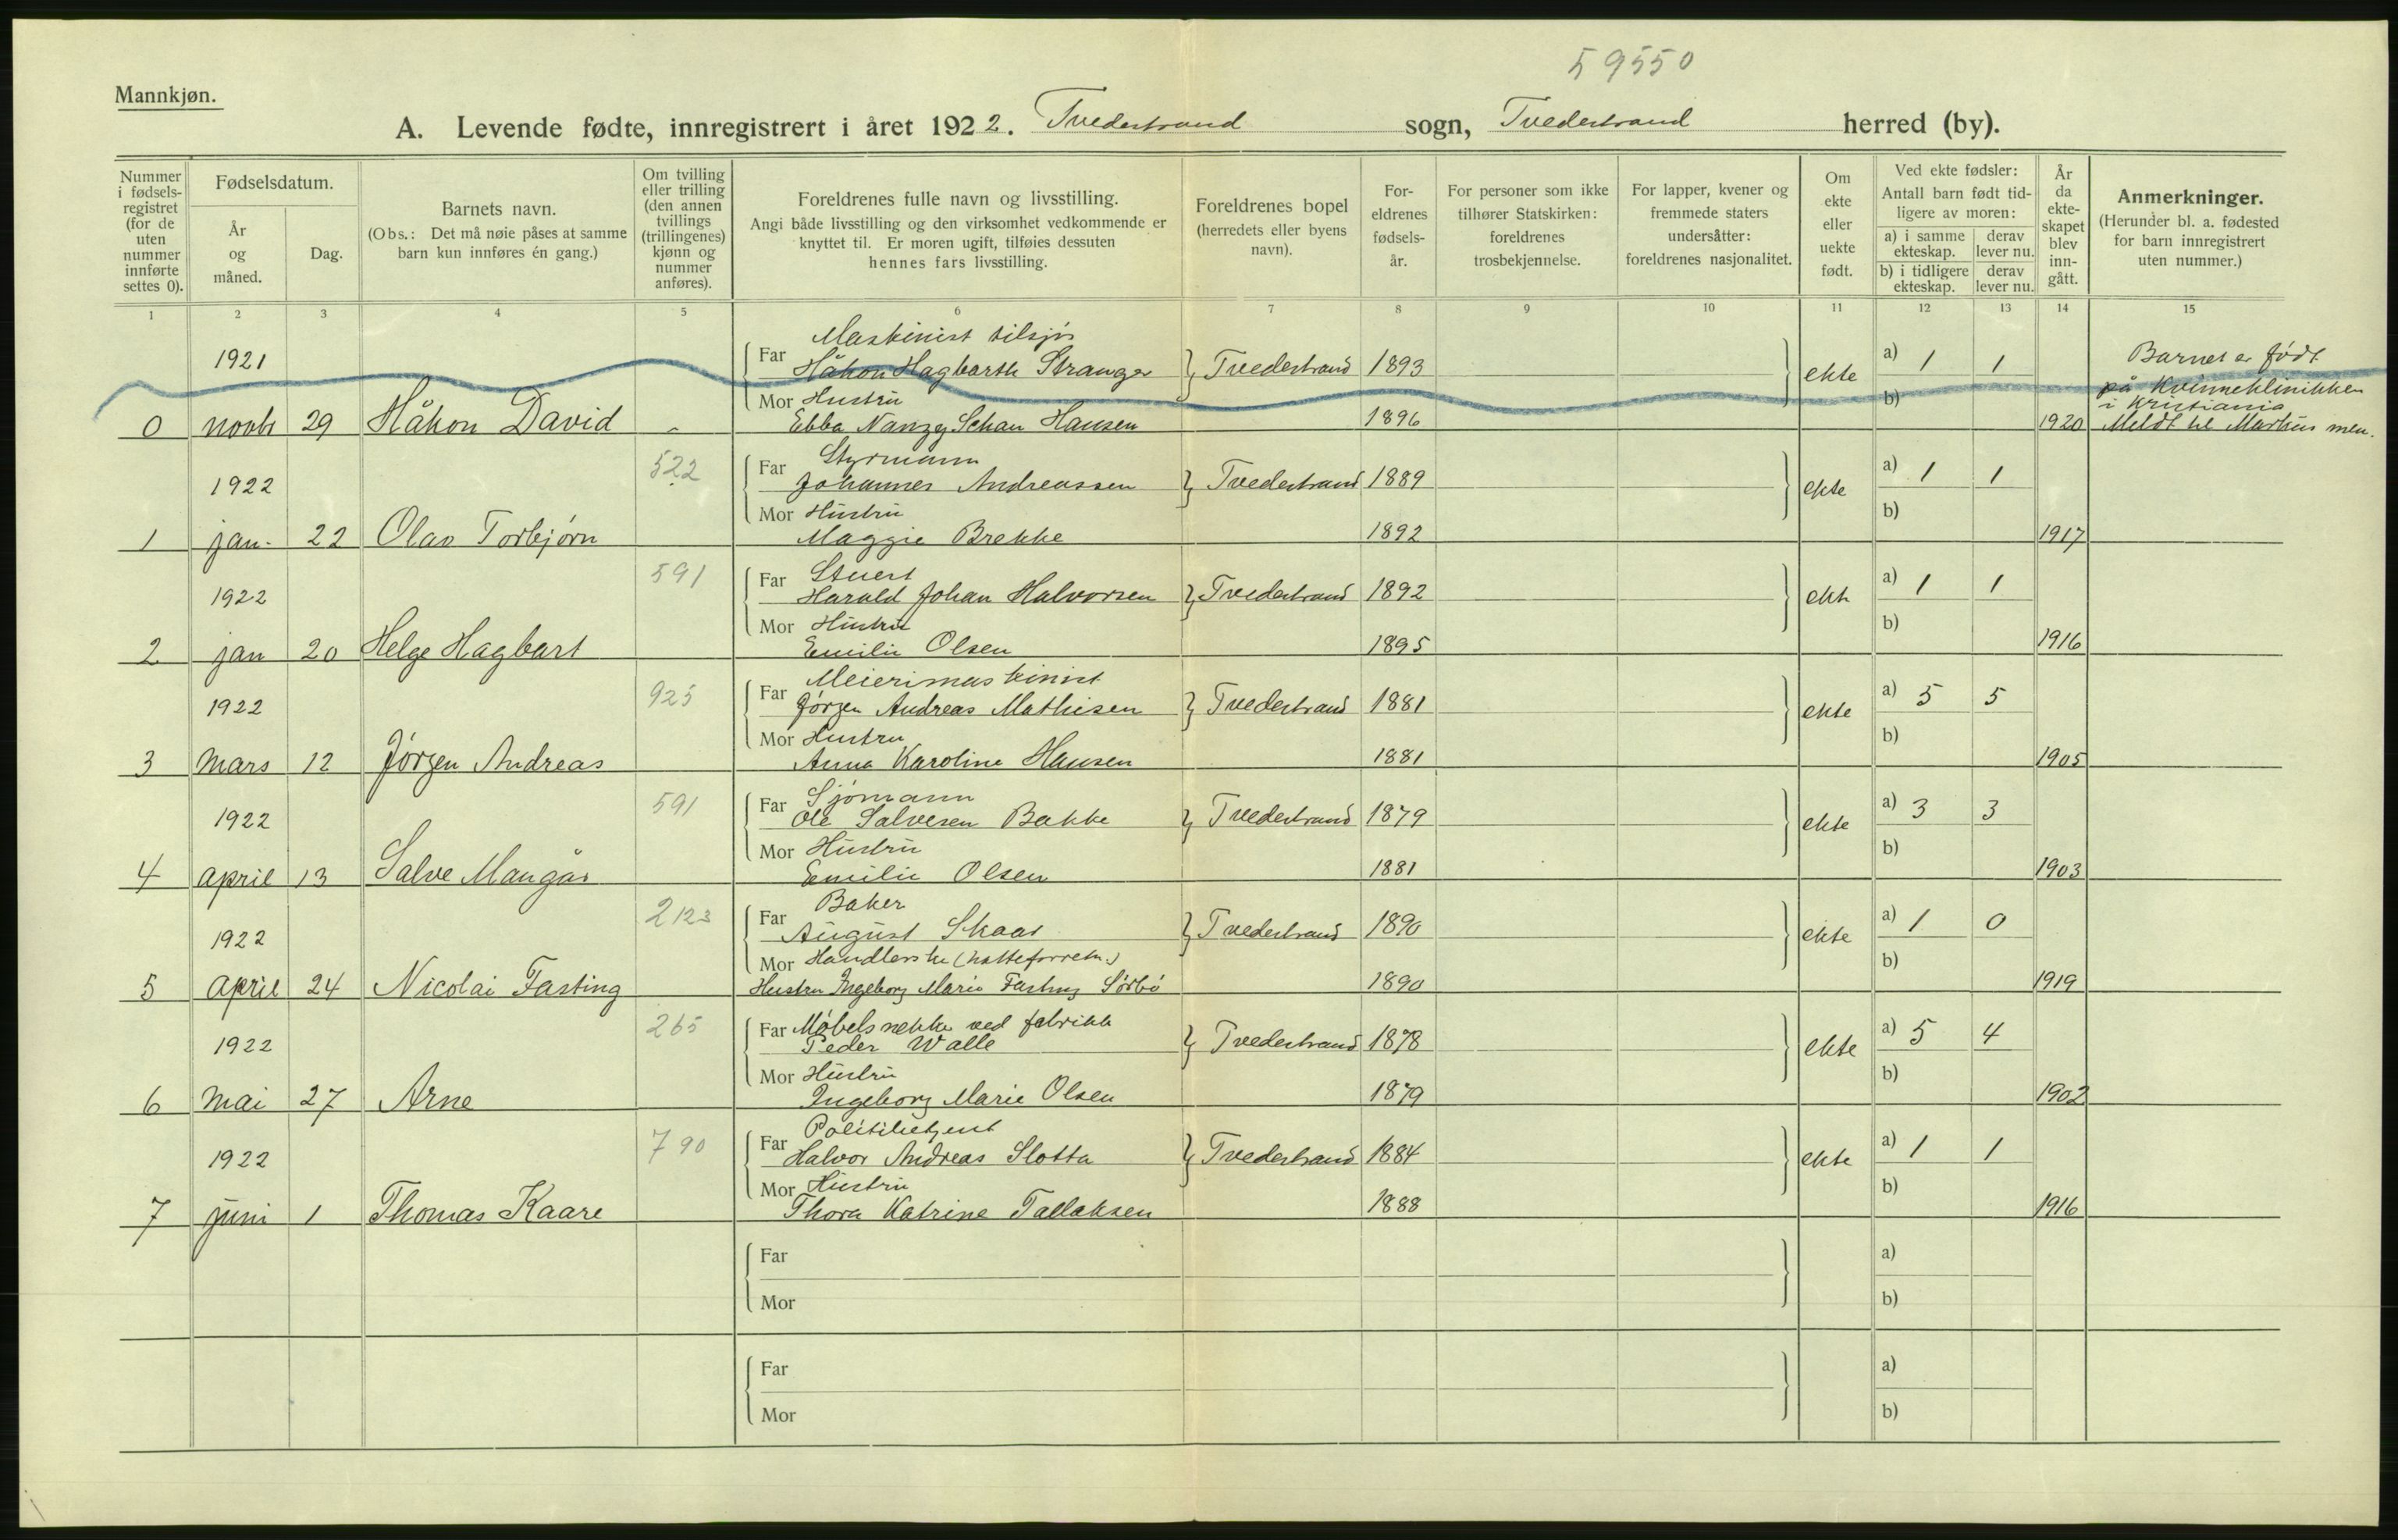 59550
Mannkjøn.
A. Levende fødte, innregistrert i året 1922. Tvedestrand sogn, Tvedestrand herred (by).
Nummer i fødsels-registret (for de uten nummer innførte settes 0).
Fødselsdatum.
År og måned.
Dag.
Barnets navn.
(Obs.: Det må nøie påses at samme barn kun innføres én gang.)
Om tvilling eller trilling (den annen tvillings (trillingenes) kjønn og nummer anføres).
Foreldrenes fulle navn og livsstilling.
Angi både livsstilling og den virksomhet vedkommende er knyttet til. Er moren ugift, tilføies dessuten hennes fars livsstilling.
Foreldrenes bopel (herredets eller byens navn).
For-eldrenes fødsels-år.
For personer som ikke tilhører Statskirken: foreldrenes trosbekjennelse.
For lapper, kvener og fremmede staters undersåtter: foreldrenes nasjonalitet.
Om ekte eller uekte født.
Ved ekte fødsler: Antall barn født tid-ligere av moren:
a) i samme ekteskap. derav lever nu.
b) i tidligere ekteskap. derav lever nu.
År da ekte-skapet blev inn-gått.
Anmerkninger.
(Herunder bl. a. fødested for barn innregistrert uten nummer.)
1 2 3 4 5 6 7 8 9 10 11 12 13 14 15
Maskinist tilsjøs
1921 Far Håkon Hagbarth Stranger Tvedestrand 1893 ekte a) 1 1 Barnet er født
Mor Hustru b) på Kvinneklinikken
i Kristiania
0 novb 29 Håkon David Ebba Nanzy Schau Hansen 1896 1920 Meldt til Markus men.
522 Styrmann
1922 Far Johannes Andreassen Tvedestrand 1889 ekte a) 1 1
Mor Hustru b)
1 jan. 22 Olav Torbjørn Maggie Brekke 1892 1917
591 Stuert
1922 Far Harald Johan Halvorsen Tvedestrand 1892 ekt a) 1 1
Mor Hustru b)
2 jan 20 Helge Hagbart Emilie Olsen 1895 1916
925 Meierimaskinist
1922 Far Jörgen Andreas Mathisen Tvedestrand 1881 ekte a) 5 5
Mor Hustru b)
3 mars 12 Jörgen Andreas Anna Karoline Hansen 1881 1905
591 Sjømann
1922 Far Ole Salvesen Bakke Tvedestrand 1879 ekte a) 3 3
Mor Hustru b)
4 april 13 Salve Mangår Emilie Olsen 1881 1903
2123 Baker
1922 Far August Skaar Tvedestrand 1890 ekte a) 1 0
Mor Handlerske (hatteforretn.) b)
5 april 24 Nicolai Fasting Hustru Ingeborg Marie Fasting Sörbö 1890 1919
265 Far Møbelsnekker ved fabrikk
1922 Peder Walle Tvedestrand 1878 ekte a) 5 4
Mor Hustru b)
6 mai 27 Arne Ingeborg Marie Olsen 1879 1902
790 Politibetjent
1922 Far Halvor Andreas Slotta Tvedestrand 1884 ekte a) 1 1
Mor Hustru b)
7 juni 1 Thomas Kaare Thora Katrine Tallaksen 1888 1916
Far a)
Mor b)
Far a)
Mor b)